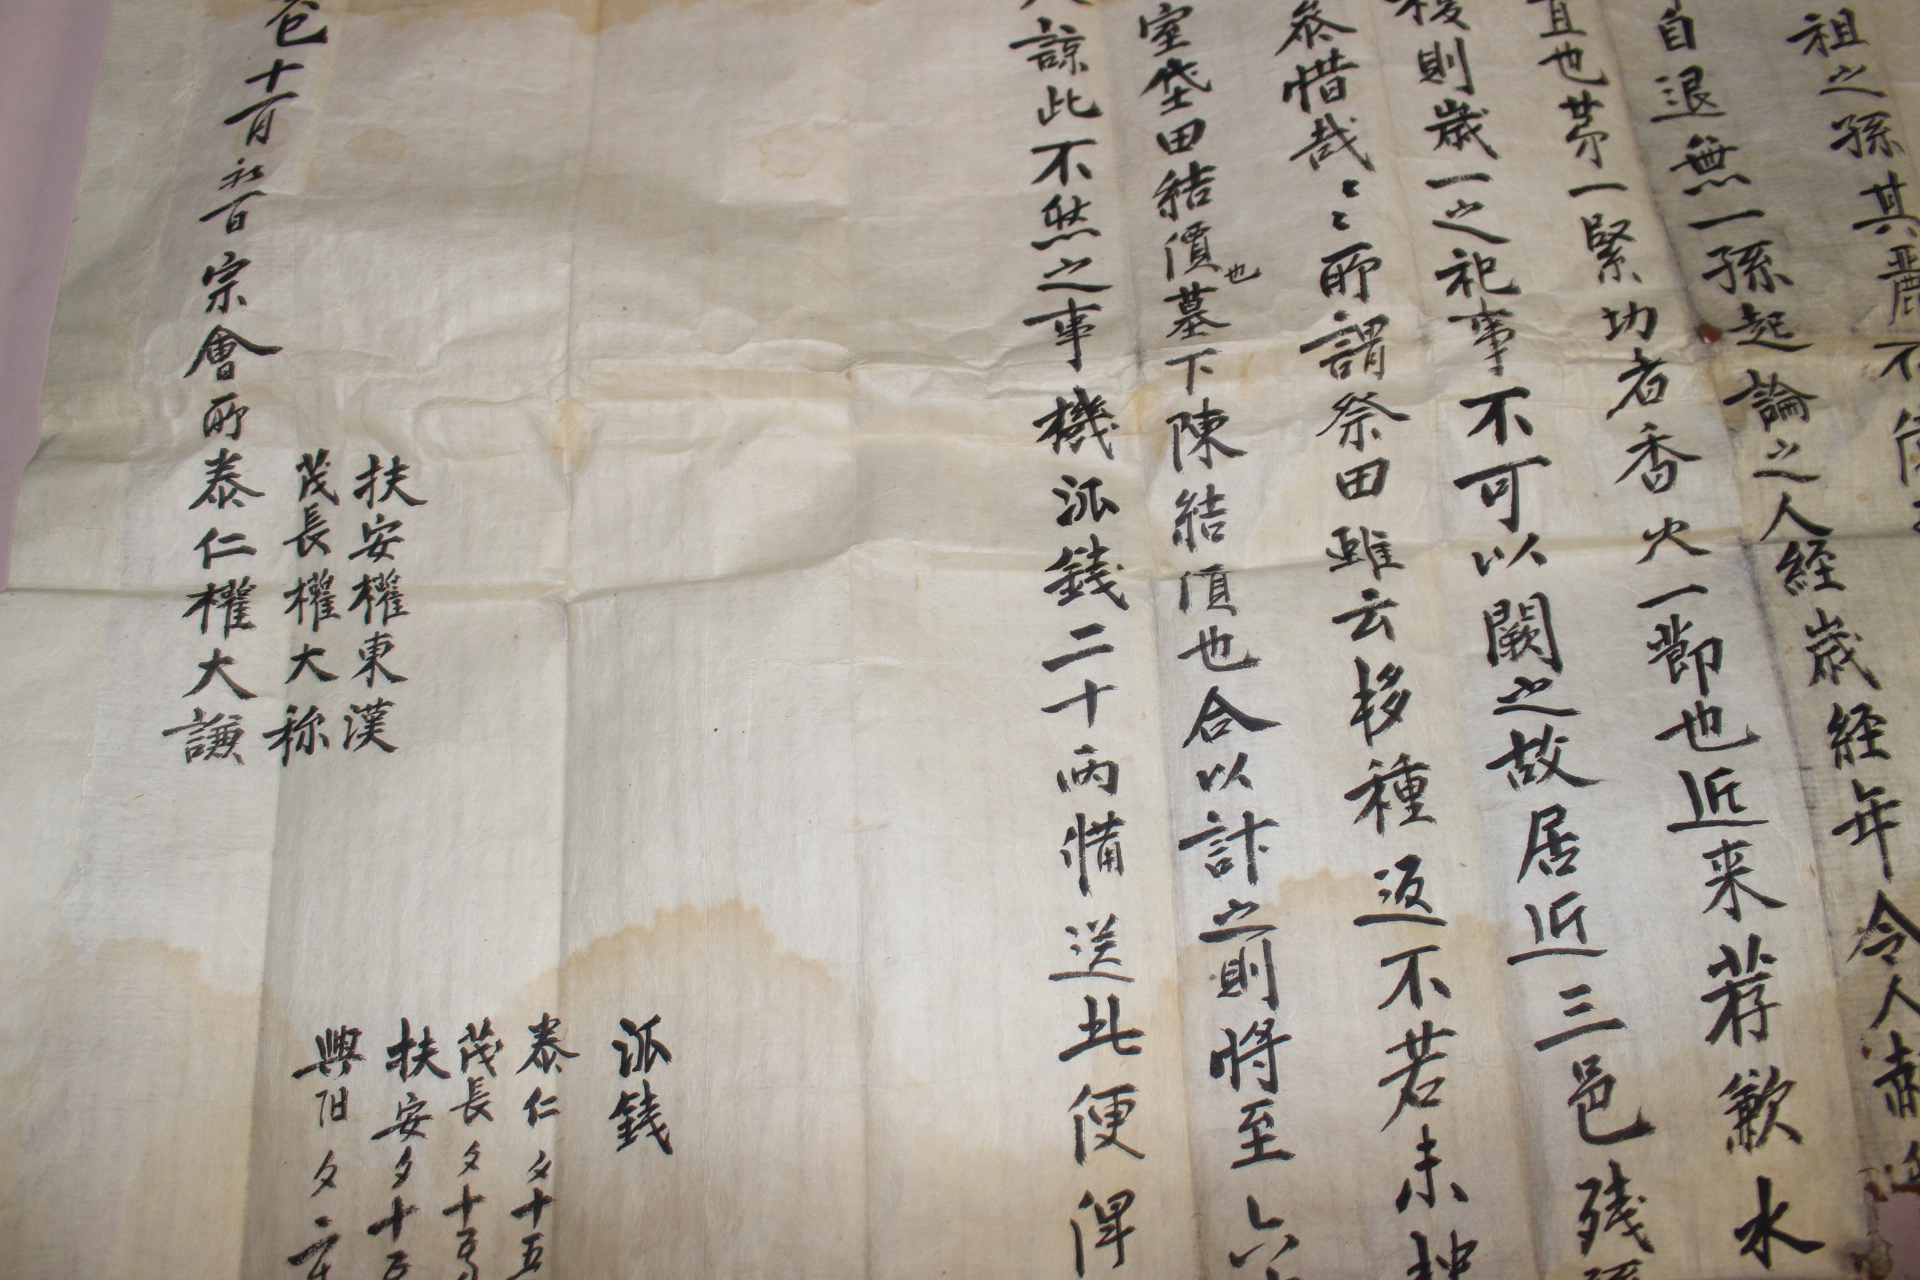 祖之孫其麗不
自退無一孫起論之人經歲經年令人
且也第一緊切者香火一節也近来荐歉水
則歲一之祀事不可以闕之故居近三邑残
恭惜哉〻〻所謂祭田雖云移種返不若未
室垈田結價也墓下陳結価也合以計之則將至六
諒此不然之事機派錢二十兩備送此便俾
派錢
泰仁 夕十五
茂長 夕十五
扶安 夕十五
興陽 夕二
扶安權東漢
茂長權大称
十一月初一日 宗會所泰仁權大謙